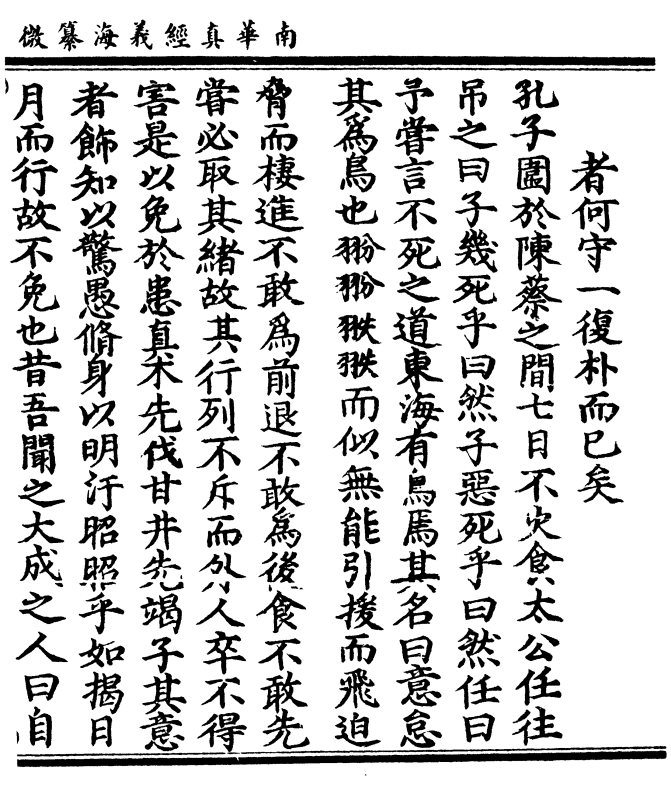 南華真經義海纂微
者何守一復朴而已矣
孔子圍於陳蔡之間七日不火食太公任往
吊之曰子幾死乎曰然子惡死乎曰然任曰
予嘗言不死之道東海有鳥焉其名曰意怠
其為鳥也翂翂翐翐而似無能引援而飛迫
脅而棲進不敢為前退不敢為後食不敢先
嘗必取其緒故其行列不斥而外人卒不得
害是以免於患直木先伐甘井先竭子其意
者飾知以驚愚脩身以明汙昭昭乎如揭日
月而行故不免也昔吾聞之大成之人曰自